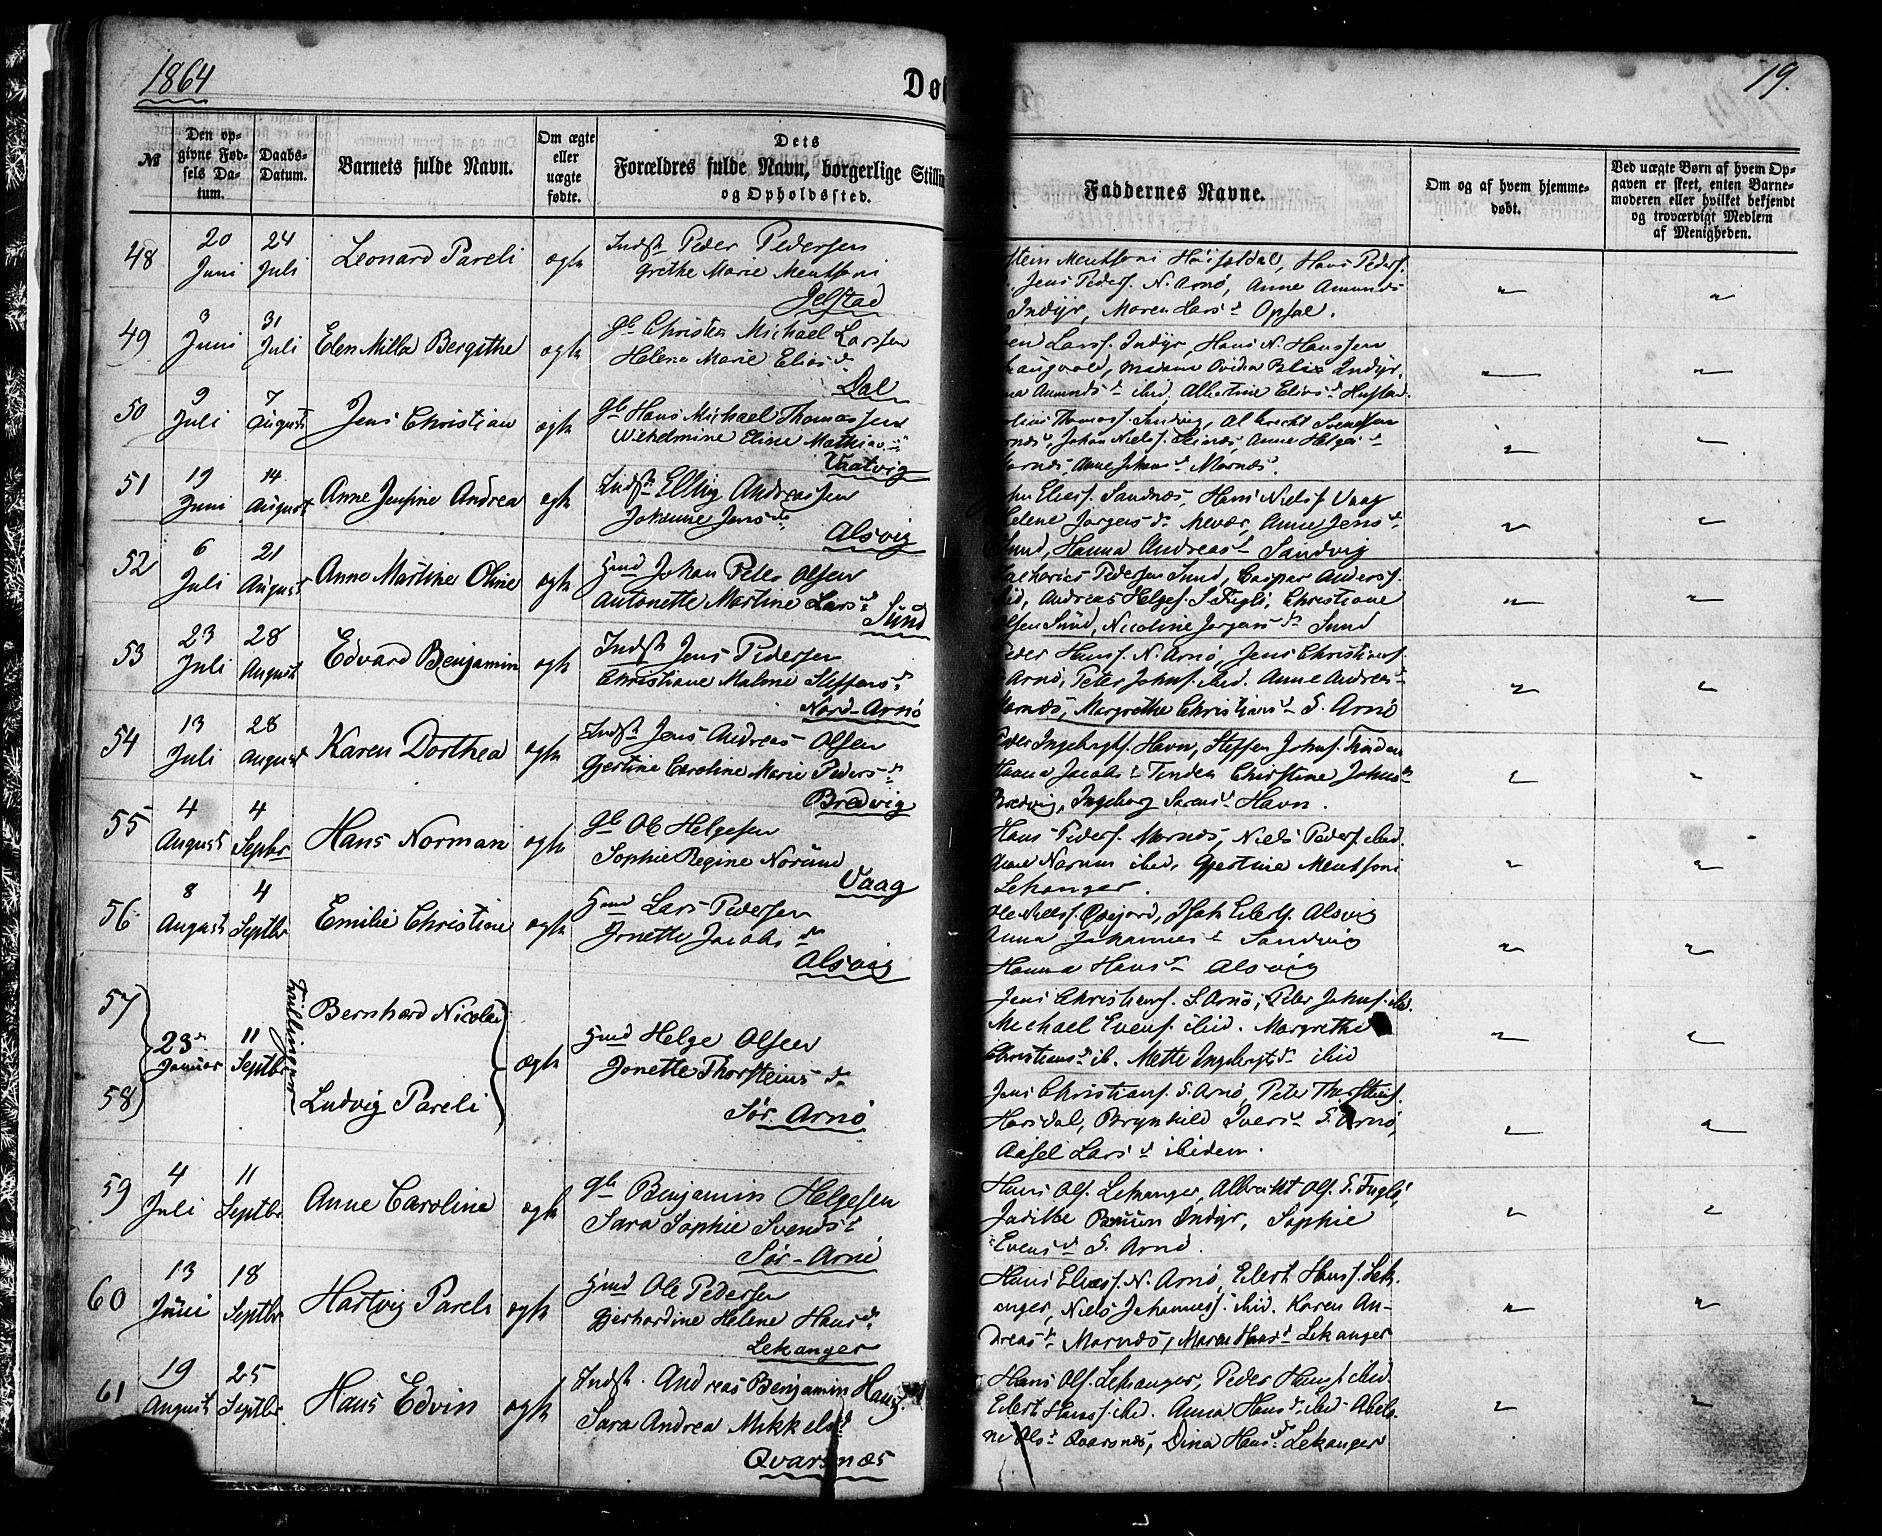 1864
Døb
19.
№
Den opgivne Fødsels Datum.
Daabs-Datum.
Barnets fulde Navn.
Om ægte eller uægte fødte.
Dets Forældres fulde Navn, borgerlige Stillin
og Opholdssted.
Faddernes Navne.
Om og af hvem hjemmedøbt.
Ved uægte Børn af hvem Opgaven er skeet, enten Barnemoderen eller hvilket bekjendt og troværdigt Medlem af Menigheden.
48 20 Juni 24 Juli Leonard Pareli ægte Indst. Peder Pedersen
Grethe Marie Mentsoni
Jelstad
stein Mentsoni Hans Peders.
Jens Peders. N. Arnø, Anne Amunds
Indyr, Maren Lars d Opsal.
49 3 Juni 31 Juli Elen Milla Bergithe ægte Gb Christen Michael Larssen
Helene Marie Elias d
Dal
Larss. Indyr, Hans N. Hanssen
Madame Ovidia Blix Indyr,
Amunds d ibid, Albertine Elias d
50 9 Juli 7 August Jens Christian ægte Gb Hans Michael Thomassen
Wilhelmine Eline Mathias d
Vaatvig
Thomas. Sandvig, Albrecht Svendsen
Johan Niels. Anne Helge d
Marnæs, Anne Johans d Marnæs.
51 19 Juni 14 August Anne Jensine Andrea ægte Indst. Elling Andreassen
Johanne Jens d
Alsvig
Elias. Sandnæs, Hans Niels. Vaag
Helene Jørgens d Mevær, Anne Jens d
Sund, Hanna Andreas d Sandvig
52 6 Juli 21 August Anne Martine Oline ægte Hmd Johan Peter Olsen
Antonette Martine Lars d
Sund
Zacharias Pedersen Sund, Caspar Anderss.
ibid, Andreas Helges. S. Fuglø, Christiane
Olsen Sund, Nicoline Jørgens d Sund
53 23 Juli 28 August Edvard Benjamin ægte Indst Jens Pedersen
Christiane Malene Steffens d
Nord-Arnø
Peder Hans. N. Arnø, Jens Christians.
Arnø, Peter Johns. ibid. Anne Andreas d
Marnæs, Margrethe Christians d S. Arnø
54 13 Juli 28 August Karen Dorthea ægte Indst Jens Andreas Olsen
Gjertine Caroline Marie Peders d
Bredvig
Peder Ingebrigts. Havn, Steffen Johns. Tinden
Hanna Jacobs d Tinden Christine Johns d
Bredvig, Ingeborg Sørens d Havn.
55 4 August 4 Septbr Hans Norman ægte Gb Ole Helgesen
Sophie Regine Norum
Vaag
Hans Peders. Marnæs, Niels Peders. ibid.
Anne Norum ibid, Gjertine Mentsoni
Lekanger.
56 8 August 4 Septbr Emilie Christine ægte Hmd Lars Pedersen
Jonette Jacobs d
Alsvig
Ole Niels. Isak Eilerts. Alsvig
Anna Johannes d Sandvig
Hanna Hans d Alsvig
57 23 Januar 11 Septbr Tvillinger Bernhard Nicolai ægte Hmd Helge Olsen
Jonette Thorsteins d
Sør-Arnø
Jens Christians. S. Arnø, Peter Johns. ibid.
Michael Evens. ibid. Margrethe
Christians d ib. Mette Ingebrigts d ibid
58 Ludvig Pareli
Jens Christians. S. Arnø, Peter Thorsteins.
Horsdal, Brynhild Ivers d S. Arnø,
Aasel Lars d ibidem.
59 4 Juli 11 Septbr Anne Caroline ægte Gb Benjamin Helgesen
Sara Sophie Svends d
Sør-Arnø
Hans Ols. Lekanger, Albrecht Ols. S. Fuglø,
Indyr, Sophie
Evens d S. Arnø.
60 13 Juni 18 Septbr Hartvig Pareli ægte Hmd Ole Pedersen
Gjerhardine Helene Hans d
Lekanger
Hans Elias. N. Arnø, Eilert Hans. Lekanger, Niels Johannes. ibid. Karen Andreas d Marnæs, Maren Hans d Lekanger
61 19 August 25 Septbr Hans Edvin ægte Indst. Andreas Benjamin Hans.
Sara Andrea Mikkels d
Qvarsnæs
Hans Ols. Lekanger, Peder Hans. ibid.
Eilert Hans. ibid. Anna Hans d ibid. Abelone Ols d Qvarsnæs, Dina Hans d Lekanger